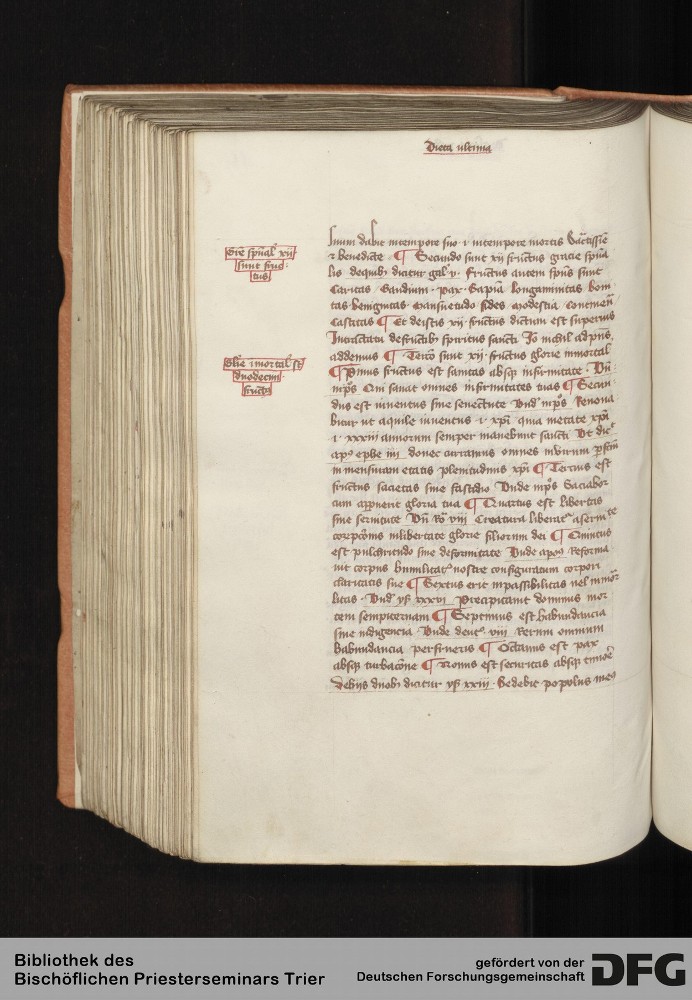 Dieta ultima
Gr̄e sp̄ual' xij
sunt fruc-
tus
inum dabit intempore suo · i · intempore mortis
⁊ benedicte ¶ Secundo sunt xij fructus gracie sp̄ua
lis dequib3 dicitur gal' v · Fructus autem sp̄us sunt
Caritas Gaudium · pax · longanimitas boni
tas benignitas Mansuetudo fides modestia
Castitas ¶ Et deistis xij fructib3 dictum est superius
Intractatu defructib3 spiritus sancti Io nichil ad p̄ns
addemus ¶ Tercio sunt xij · fructus glorie inmortal'
Gl'ie īmortal' st̄
duodecim
fructꝰ
¶ Primus fructus est sanitas absq3 infirmitate · Vn̄
mp̄s Qui sanat omnes infirmitates tuas ¶ Secun
dus est iuuentus sine senectute Vnd' mp̄s Renoua
bitur ut aquile iuuentus · i · xp̄i quia inetate xp̄i
i · xxxiii annorum semper manebunt sancti Vt dic̄
ap̄ ephe iiii donec curramus omnes invirum
in mensuram etatis plenitudinis xp̄i ¶ Tercius est
fructus sacietas sine fastidio Vnde mp̄s Saciabor
cum apparuerit gloria tua ¶ Quartus est libertas
sine seruitute Vn̄ Ro viii Creatura liberat' aserui te
corrupcōnis inlibertate glorie filiorum dei ¶ Quintus
est pulchritudo sine deformitate Vnde apꝰ Reforma
uit corpus humilitat' nostre configuratum corpori
claritatis sue ¶ Sextus erit inpassibilitas uel inmor
litas · Vnd' ys' xxvi Precipitauit dominus mor
tem sempiternam ¶ Septimus est habundancia
sine indigencia Vnde deut' viii Rerum omnium
habundancia perfrueris ¶ Octauus est pax
absq3 turbacōne ¶ Nonus est securitas absq3 timore
Dehijs duob3 dicitur ys' xxiii · Sedebit populus meꝰ
Bibliothek des
Bischöflichen Priesterseminars Trier
gefördert von der
Deutschen Forschungsgemeinschaft
DFG